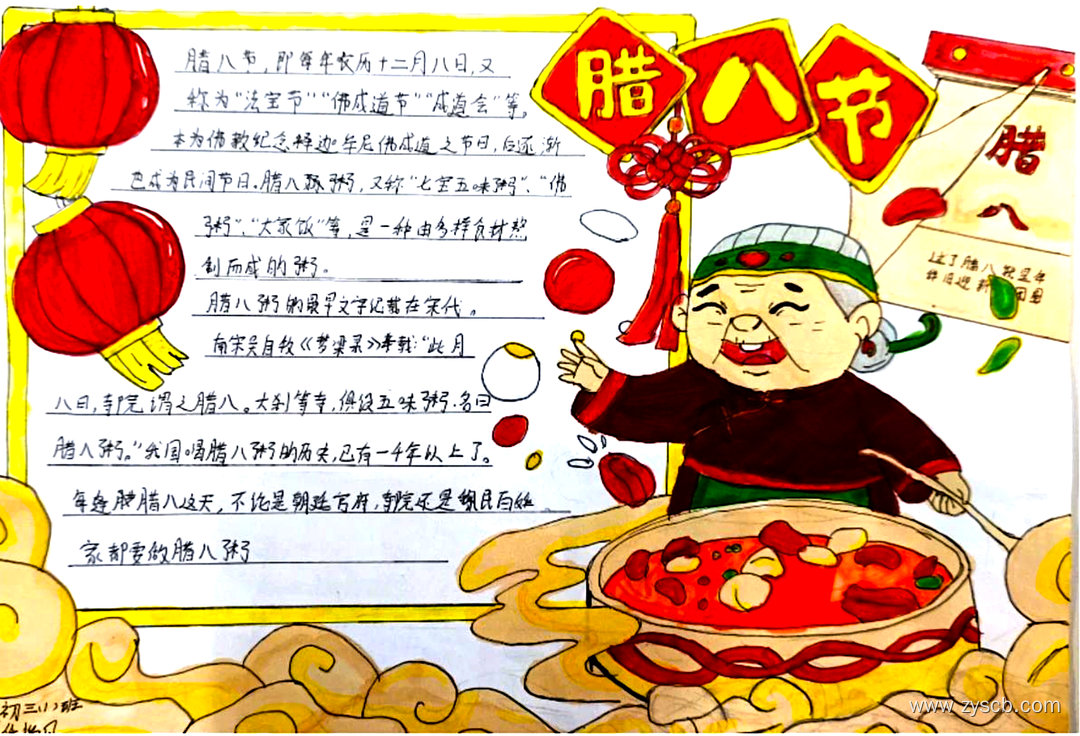 腊八节
腊八节，即每年农历十二月八日，又
称为“法宝节”“佛成道节”“成道会”等。
本为佛教纪念释迦牟尼佛成道之节日，后逐渐
也成为民间节日。腊八粥，又称“七宝五味粥”、“佛
粥”、“大家饭”等，是一种由多样食材熬
制而成的粥。
腊八粥的最早文字记载在宋代。
南宋吴自牧《梦梁录》卷载：“此月
八日，寺院谓之腊八。大刹等寺，俱设五味粥，名曰
腊八粥。”我国喝腊八粥的历史，已有一千年以上了。
每逢腊八这天，不论是朝廷官府，寺院还是黎民百姓
家都要做腊八粥
腊
八
过了腊八就是年
辞旧迎新 团圆
初三(1)班
www.zyscb.com